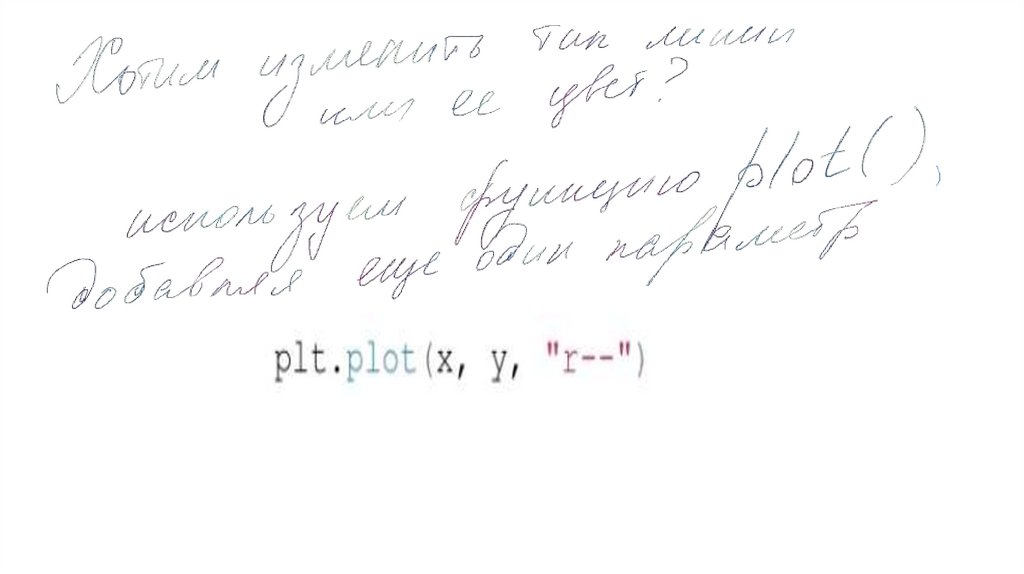 Хотим изменить тип линии
или ее цвет?
используем функцию plot(),
добавляя еще один параметр
plt.plot(x, y, "r--")